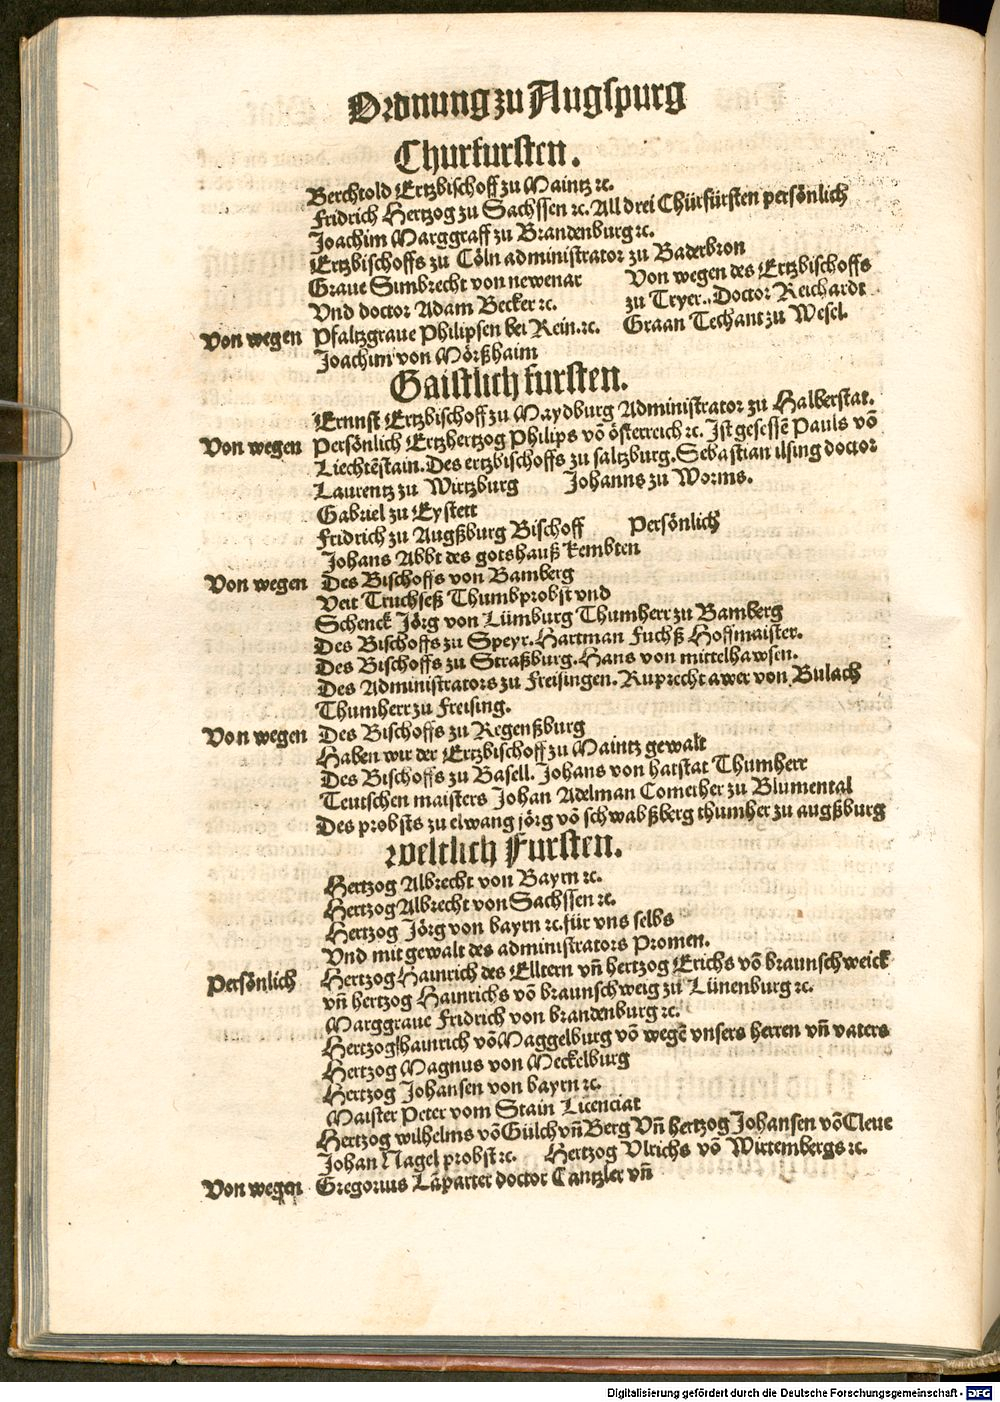 Ordnung zu Augspurg
Churfursten.
Berchtold Ertzbischoff zu Maintz ꝛc.
Fridrich Hertzog zu Sachssen ꝛc. All drei Chürfürsten persönlich
Joachim Marggraff zu Brandenburg ꝛc.
Ertzbischoffs zu Cöln administrator zu Baderbron
Graue Simbrecht von newenar Von wegen des Ertzbischoffs
Vnd doctor Adam Becker ꝛc. zu Tryer., Doctor Reichardt
Von wegen Pfaltzgraue Philipsen bei Rein.ꝛc. Graan Techant zu Wesel.
Joachim von Mörßhaim
Gaistlich fursten.
Ernnst Ertzbischoff zu Maydburg Administrator zu Halberstat.
Von wegen Persönlich Ertzhertzog Philips vō österreich ꝛc. Ist gesessē Pauls vō
Liechtēstain. Des ertzbischoffs zu saltzburg. Sebastian ilsing doctor
Laurentz zu Wirtzburg Johanns zu Worms.
Gabriel zu Eystett
Fridrich zu Augßburg Bischoff Persönlich
Johans Abbt des gotshauß kembten
Von wegen Des Bischoffs von Bamberg
Veit Truchseß Thumbprobst vnd
Schenck Jörg von Lümburg Thumherr zu Bamberg
Des Bischoffs zu Speyr. Hartman Fuchß Hoffmaister.
Des Bischoffs zu Straßburg. Hans von mittelhawsen.
Des Administrators zu Freisingen. Ruprecht awer von Bulach
Thumherr zu Freising.
Von wegen Des Bischoffs zu Regenßburg
Haben wir der Ertzbischoff zu Maintz gewalt
Des Bischoffs zu Basell. Johans von hatstat Thumherr
Teutschen maisters Johan Adelman Comether zu Blumental
Des probsts zu elwang jörg vō schwabßberg thumher zu augßburg
weltlich Fursten.
Hertzog Albrecht von Bayrn ꝛc.
Hertzog Albrecht von Sachssen ꝛc.
Hertzog Jörg von bayrn ꝛc. für vns selbs
Vnd mit gewalt des administrators Promen.
Persönlich Hertzog Hainrich des Elltern vn̄ hertzog Erichs vō braunschweick
vn̄ hertzog Hainrichs vō braunschweig zu Lünenburg ꝛc.
Marggraue Fridrich von brandenburg ꝛc.
Hertzog hainrich vō Maggelburg vō wegē vnsers herren vn̄ vaters
Hertzog Magnus von Meckelburg
Hertzog Johansen von bayrn ꝛc.
Maister Peter vom Stain Licenciat
Hertzog wilhelms vō Gülch vn̄ Berg Vn̄ hertzog Johansen vō Cleue
Johan Nagel probst ꝛc. Hertzog Vlrichs vō Wirtembergs ꝛc.
Von wegen Gregorius Laparter doctor Cantzler vn̄
Digitalisierung gefördert durch die Deutsche Forschungsgemeinschaft - DFG